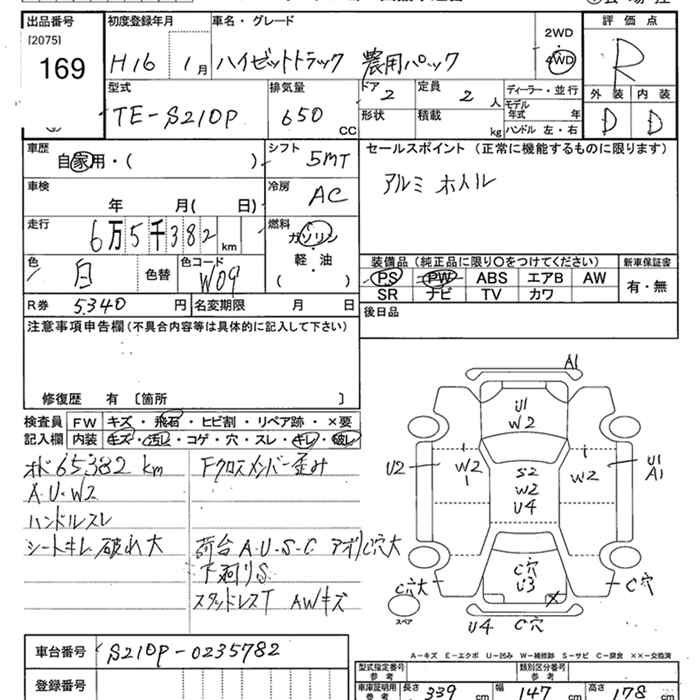 出品番号 初度登録年月 車名・グレード 評価点
[2075] 169 H16 1月 ハイゼットトラック 農用パック 2WD 4WD R
型式 排気量 ドア 2 定員 2 人 ディーラー・並行 外装 内装
TE-S210P 650 CC 形状 積載 kg モデル年式 年 D D
ハンドル 左・右
車歴 シフト 5MT セールスポイント(正常に機能するものに限ります)
自家用・( ) アルミ ホイル
車検 年 月( 日) 冷房 AC
走行 6万5千382 km 燃料 ガソリン
軽・油
( )
色 白 色替 色コード W09 装備品(純正品に限り○をつけてください) 新車保証書
PS PW ABS エアB AW 有・無
SR ナビ TV カワ
R券 5,340 円 名変期限 月 日 後日品
注意事項申告欄(不具合内容等は具体的に記入して下さい)
修復歴 有 〔箇所 〕
検査員 FW キズ・飛石・ヒビ割・リペア跡・×要
記入欄 内装 キズ・汚れ・コゲ・穴・スレ・キレ・破れ
オド65382km Fクロスメンバー歪み
A・U・W2
ハンドルスレ
シートキレ 破れ大 荷台A・U・S・C アオリC穴大
下廻りS
スタッドレスT AWキズ
A1
U1
W2
U2 W2 S2 W2 U1
W2 A1
U4
C穴
U3
C穴大 C穴
スペア
U4 C穴
A-キズ E-エクボ U-凹み W-補修跡 S-サビ C-腐食 ××-交換済
車台番号 S210P-0235782
登録番号
型式指定番号 参考 類別区分番号 参考
車庫証明用 参考 長さ 339 cm 幅 147 cm 高さ 178 cm